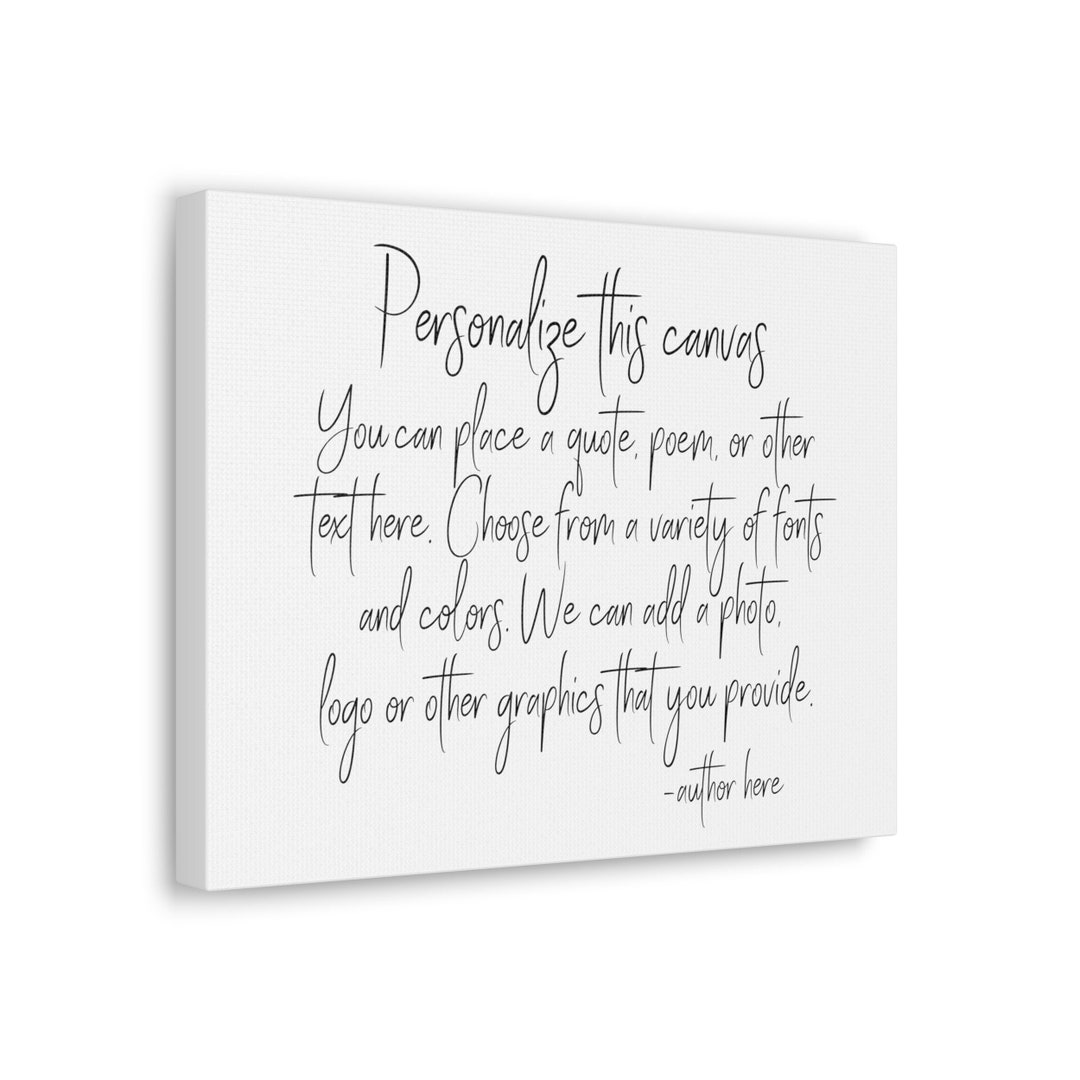 Personalize this canvas
You can place a quote, poem, or other
text here. Choose from a variety of fonts
and colors. We can add a photo,
logo or other graphics that you provide.
-author here